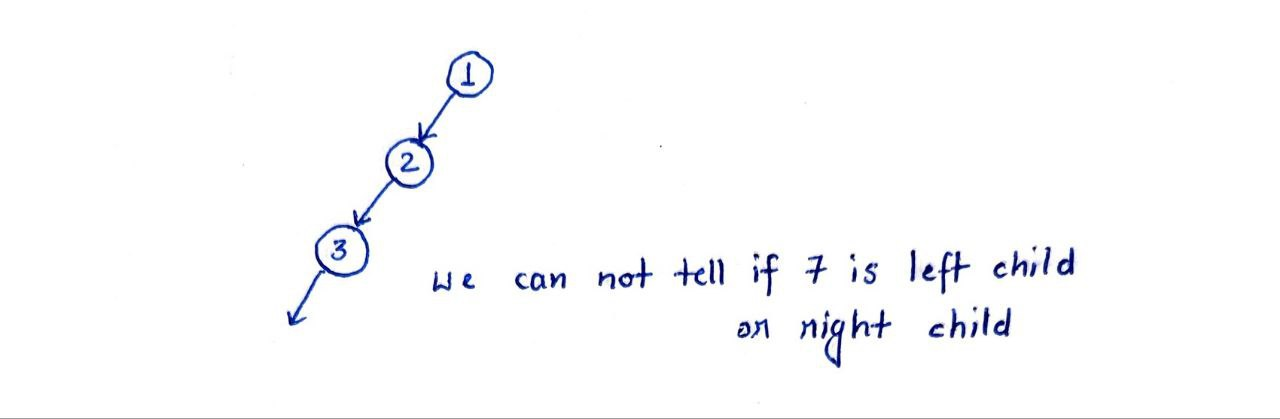 1
2
3
we can not tell if 7 is left child
or right child